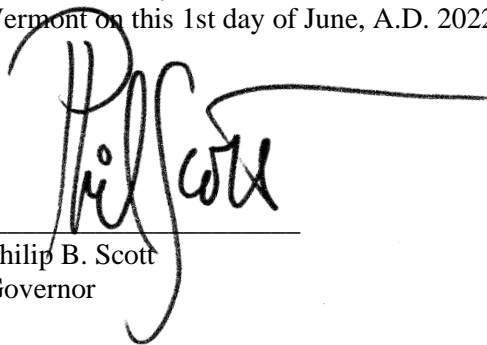 Vermont on this 1st day of June, A.D. 2022
Phil Scott
Philip B. Scott
Governor